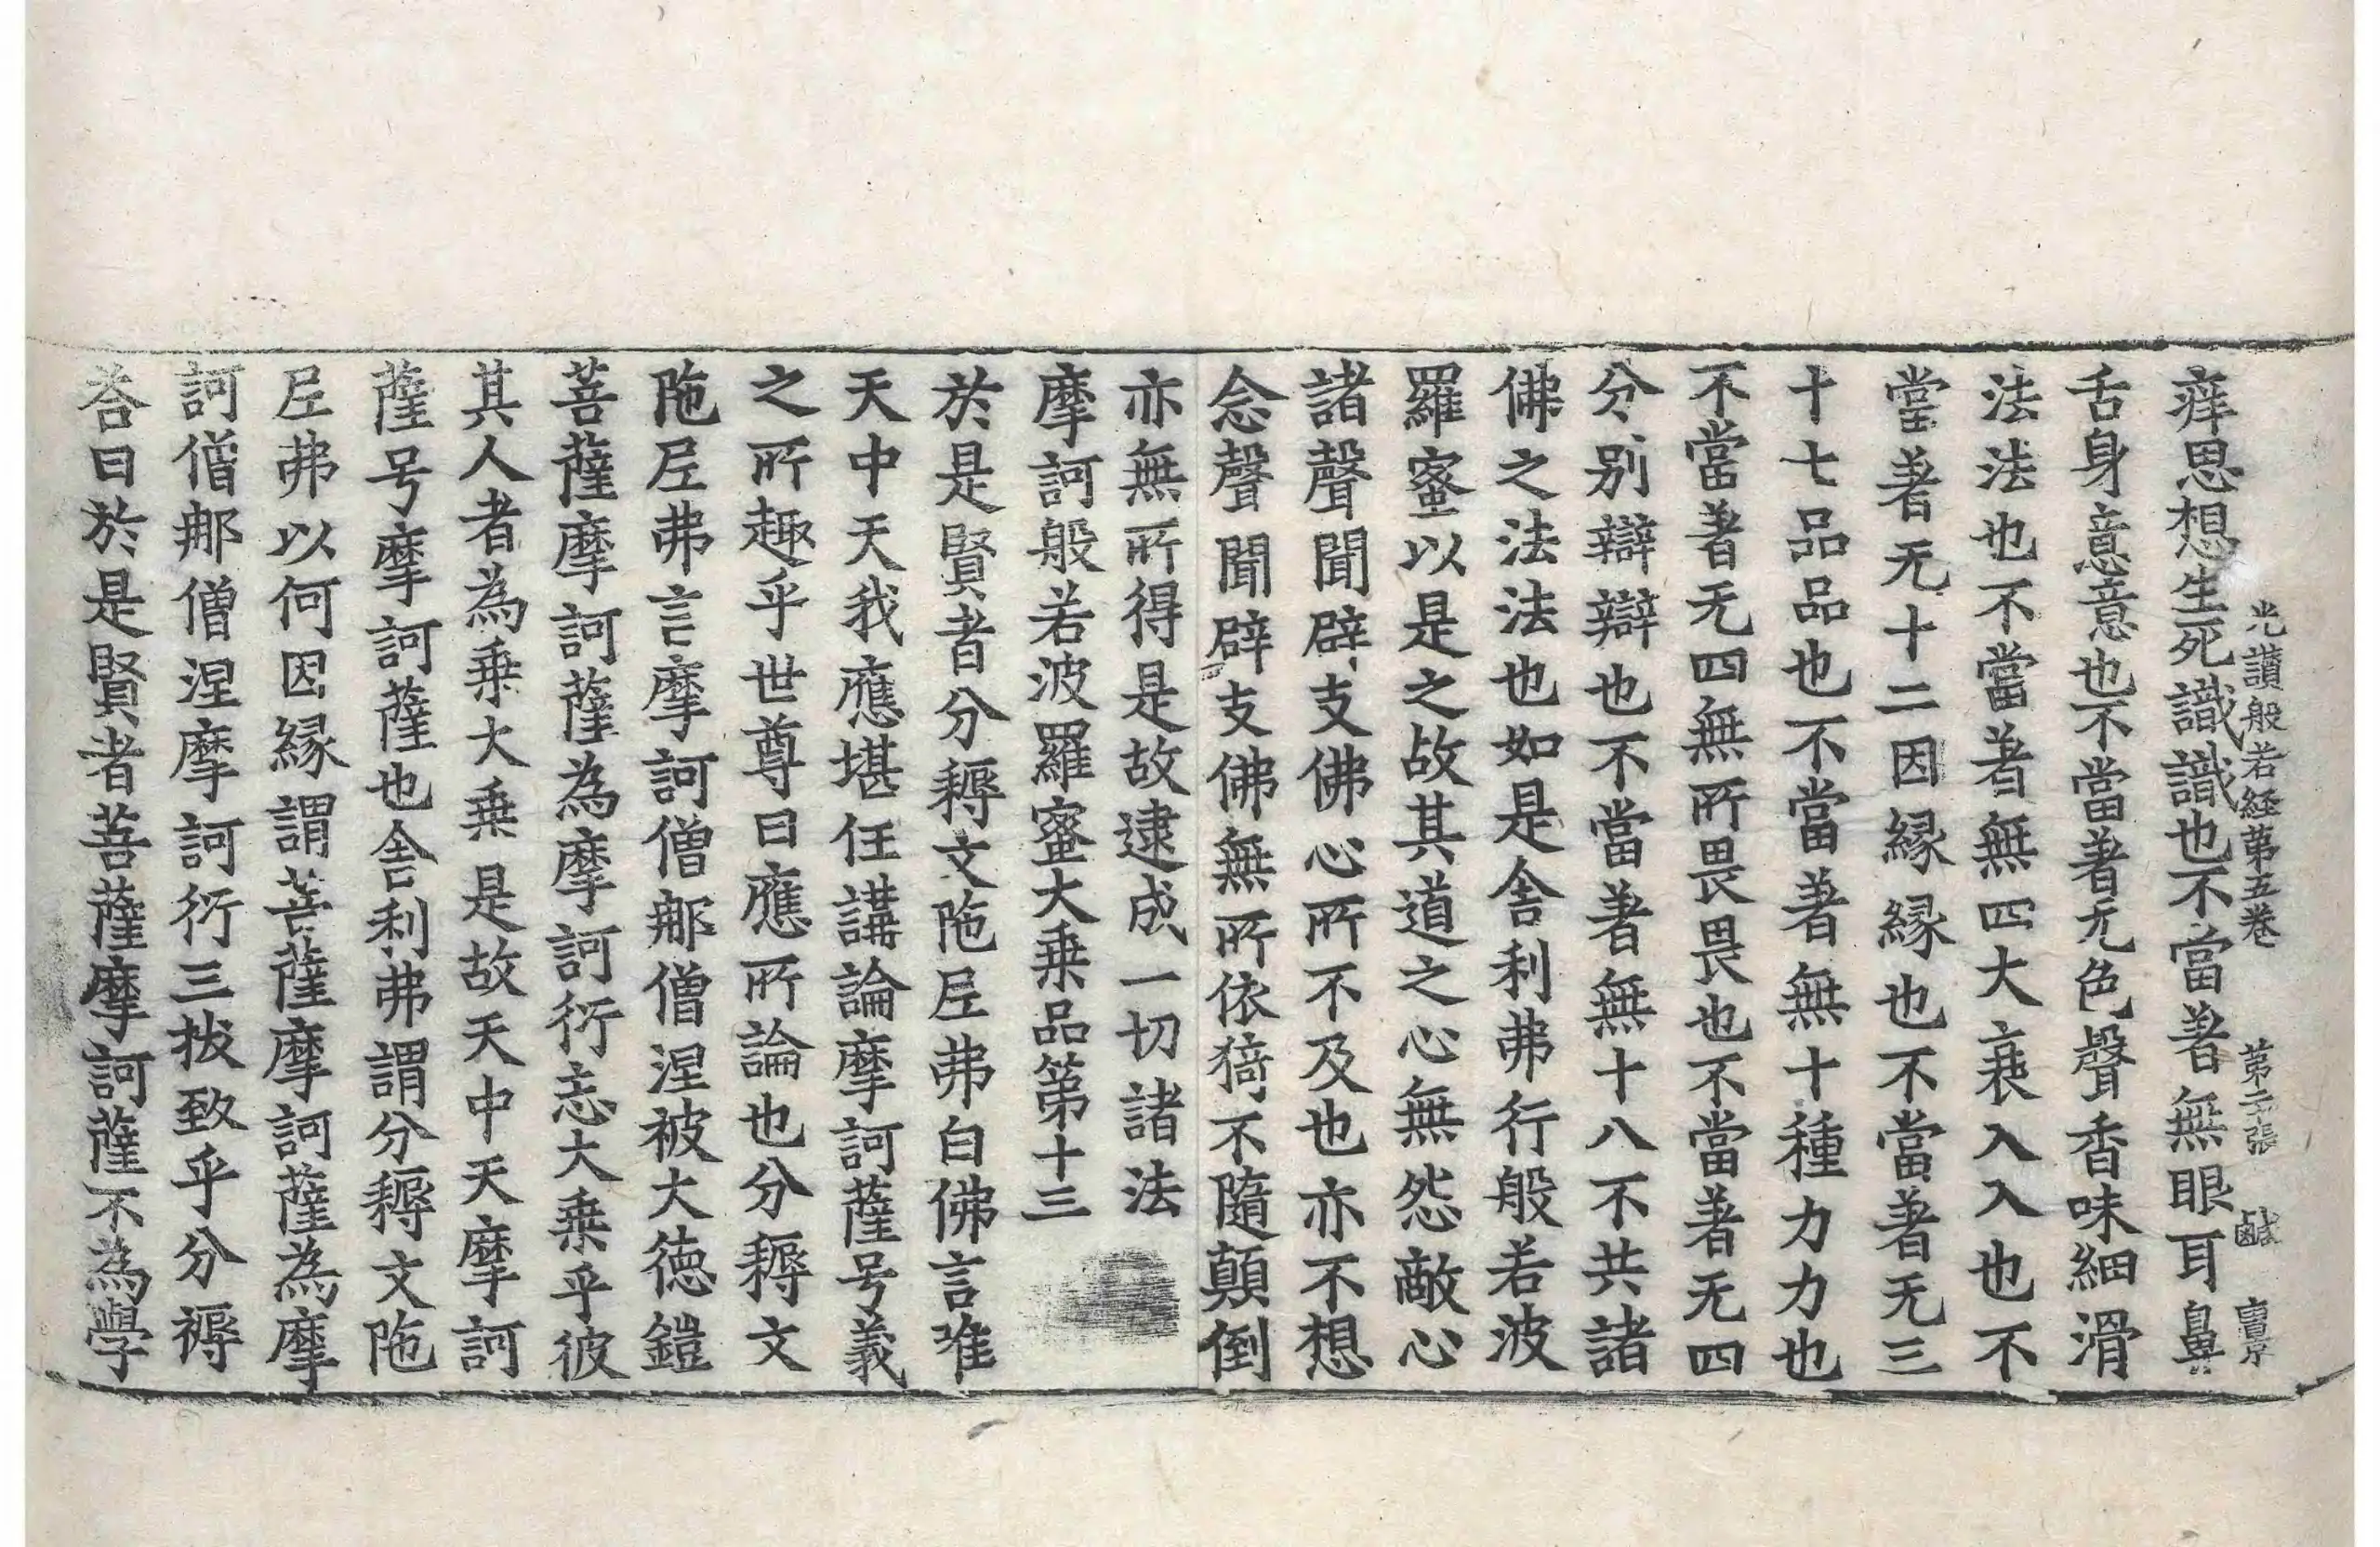 光讃般若経第五巻　第二張　鹹
痒思想生死識識也不當著無眼耳鼻
舌身意意也不當著无色聲香味細滑
法法也不當著無四大衰入入也不
當著无十二因縁縁也不當著无三
十七品品也不當著無十種力力也
不當著无四無所畏畏也不當著无四
分別辯辯也不當著無十八不共諸
佛之法法也如是舎利弗行般若波
羅蜜以是之故其道之心無怨敵心
諸聲聞辟支佛心所不及也亦不想
念聲聞辟支佛無所依猗不隨顛倒
亦無所得是故逮成一切諸法
摩訶般若波羅蜜大乗品第十三
於是賢者分耨文陁𡰱弗白佛言唯
天中天我應堪任講論摩訶薩号義
之所趣乎世尊曰應所論也分耨文
陁𡰱弗言摩訶僧那僧涅被大徳鎧
菩薩摩訶薩為摩訶衍志大乗乎彼
其人者為乗大乗是故天中天摩訶
薩号摩訶薩也舎利弗謂分耨文陁
𡰱弗以何因縁謂菩薩摩訶薩為摩
訶僧那僧涅摩訶衍三拔致乎分耨
荅曰於是賢者菩薩摩訶薩不為學